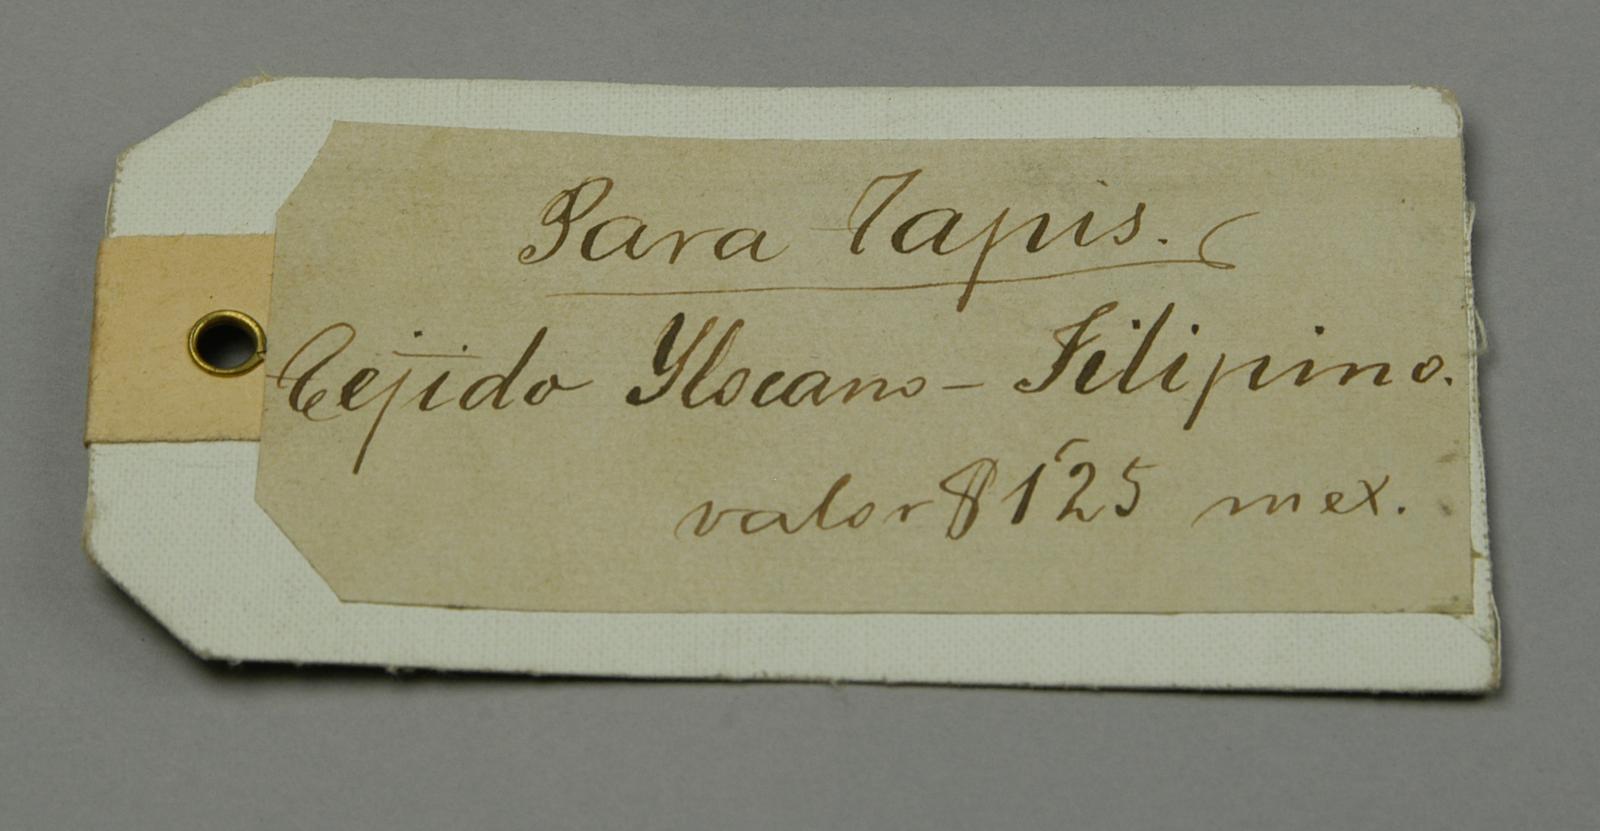 Para Tapis.
Tejido Ylocano - Filipino.
valor $ 1'25 mex.